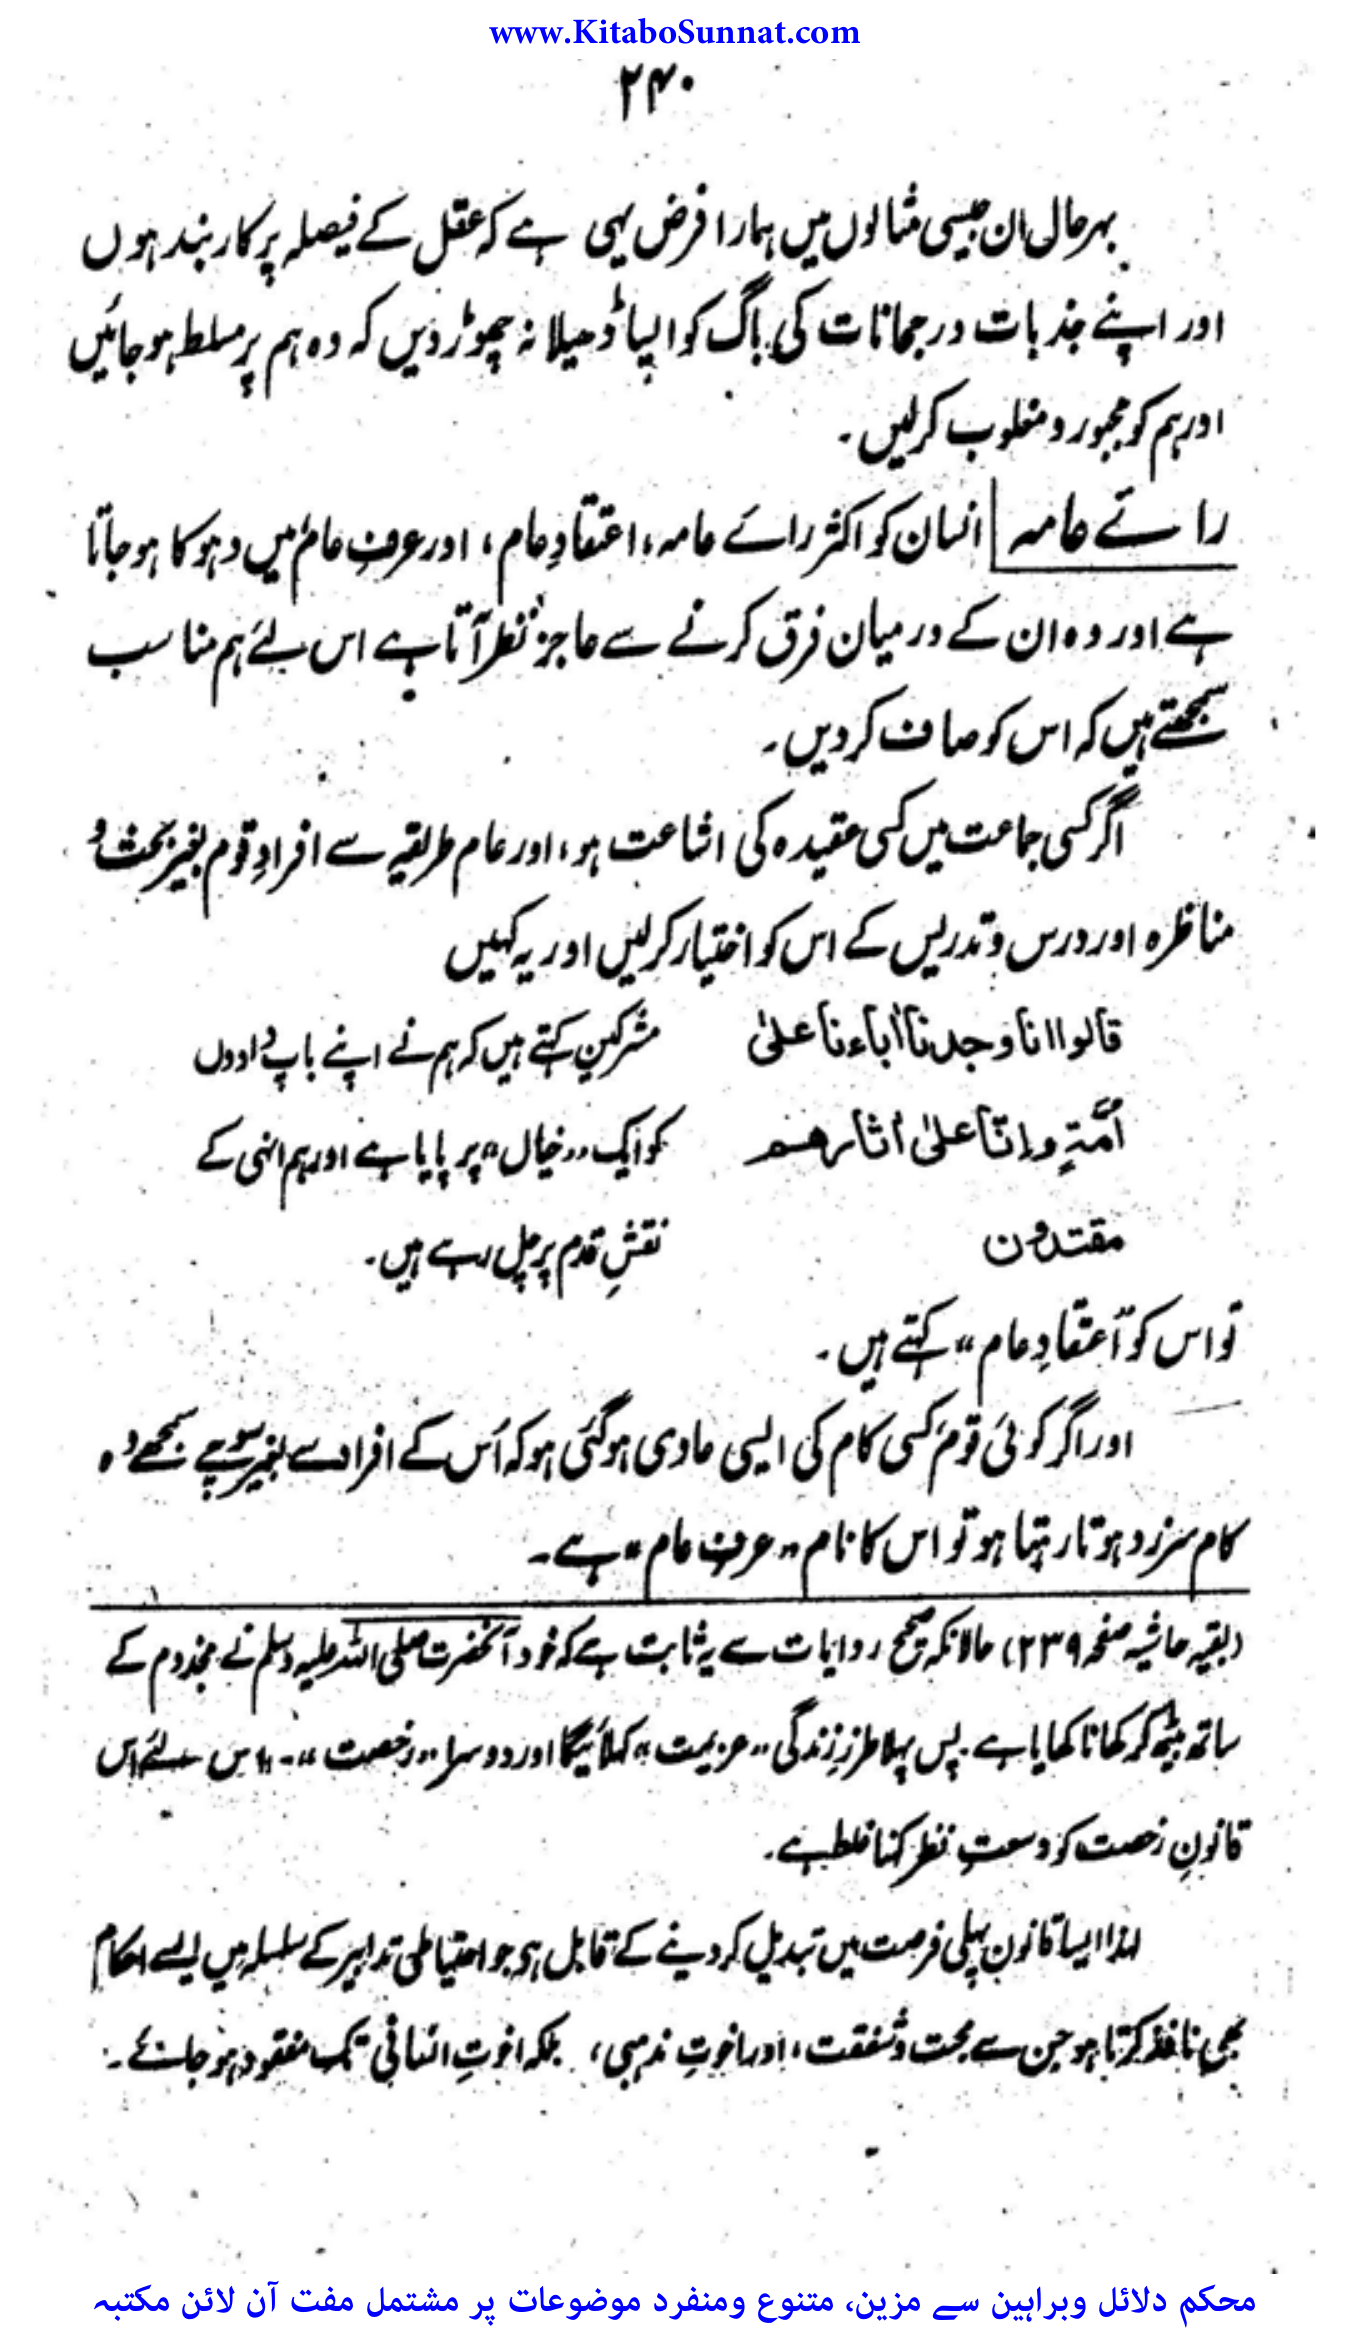 www.KitaboSunnat.com
۲۴۰
بہرحال ان جیسی مثالوں میں ہمارا فرض یہی ہے کہ عقل کے فیصلہ پر کاربند ہوں
اور اپنے جذبات و رجحانات کی باگ کو ایسا ڈھیلا نہ چھوڑ دیں کہ وہ ہم پر مسلط ہو جائیں
اور ہم کو مجبور و مغلوب کر لیں۔
رائے عامہ | انسان کو اکثر رائے عامہ، اعتقادِ عام، اور عرفِ عام میں دہوکا ہو جاتا
ہے اور وہ ان کے درمیان فرق کرنے سے عاجز نظر آتا ہے اس لئے ہم مناسب
سمجھتے ہیں کہ اس کو صاف کر دیں۔
اگر کسی جماعت میں کسی عقیدہ کی اشاعت ہو، اور عام طریقہ سے افرادِ قوم بغیر بحث و
مناظرہ اور درس و تدریس کے اس کو اختیار کر لیں اور یہ کہیں
قالوا انا وجدنا اٰباءنا علیٰ مشرکین کہتے ہیں کہ ہم نے اپنے باپ دادوں
اُمّۃٍ وانّا علیٰ اٰثارھم کو ایک "خیال" پر پایا ہے اور ہم انہی کے
مقتدون نقشِ قدم پر چل رہے ہیں۔
تو اس کو "اعتقادِ عام" کہتے ہیں۔
اور اگر کوئی قوم کسی کام کی ایسی عادی ہو گئی ہو کہ اُس کے افراد سے بغیر سوچے سمجھے وہ
کام سرزد ہوتا رہتا ہو تو اس کا نام "عرفِ عام" ہے۔
(بقیہ حاشیہ صفحہ ۲۳۹) حالانکہ صحیح روایات سے یہ ثابت ہے کہ خود آنحضرت صلی اللہ علیہ وسلم نے مجذوم کے
ساتھ بیٹھ کر کھانا کھایا ہے۔ پس پہلا طرزِ زندگی "عزیمت" کہلائیگا اور دوسرا "رخصت"۔ اس لئے اس
قانونِ رخصت کو وسعتِ نظر کہنا غلط ہے۔
لہٰذا ایسا قانون پہلی فرصت میں تبدیل کر دینے کے قابل ہی جو احتیاطی تدابیر کے سلسلہ میں ایسے احکام
بھی نافذ کرتا ہو جن سے محبت و شفقت، اور اخوتِ مذہبی، بلکہ اخوتِ انسانی تک مفقود ہو جائے۔
محکم دلائل وبراہین سے مزین، متنوع ومنفرد موضوعات پر مشتمل مفت آن لائن مکتبہ